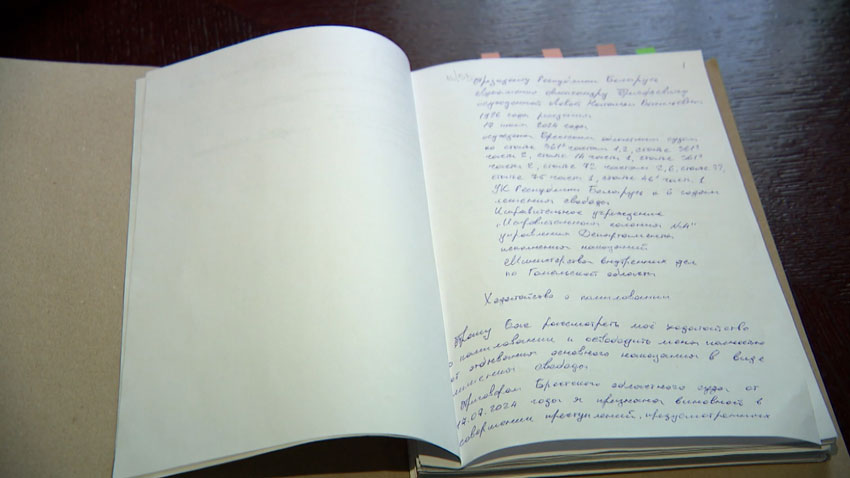 1
Президенту Республики Беларусь
Александру Григорьевичу
осужденной
1996 года рождения
17 июля 2024 года
осуждена Брестским областным судом
по статье 361⁴ частям 1, 2, статье 361¹
части 2, статье 16 части
части 2, статье 72 частям 2, 6, статье
статье 75 части
УК Республики Беларусь к 6 годам
лишения свободы
Исправительное учреждение
„Исправительная колония №4"
управления Департамента
исполнения наказаний
Министерства внутренних дел
по Гомельской области
Ходатайство о помиловании
Прошу Вас рассмотреть моё ходатайство
о помиловании и освободить меня полностью
от отбывания основного наказания в виде
лишения свободы.
Приговором Брестского областного суда от
17.07.2024 года я признана виновной в
совершении преступлений, предусмотренных